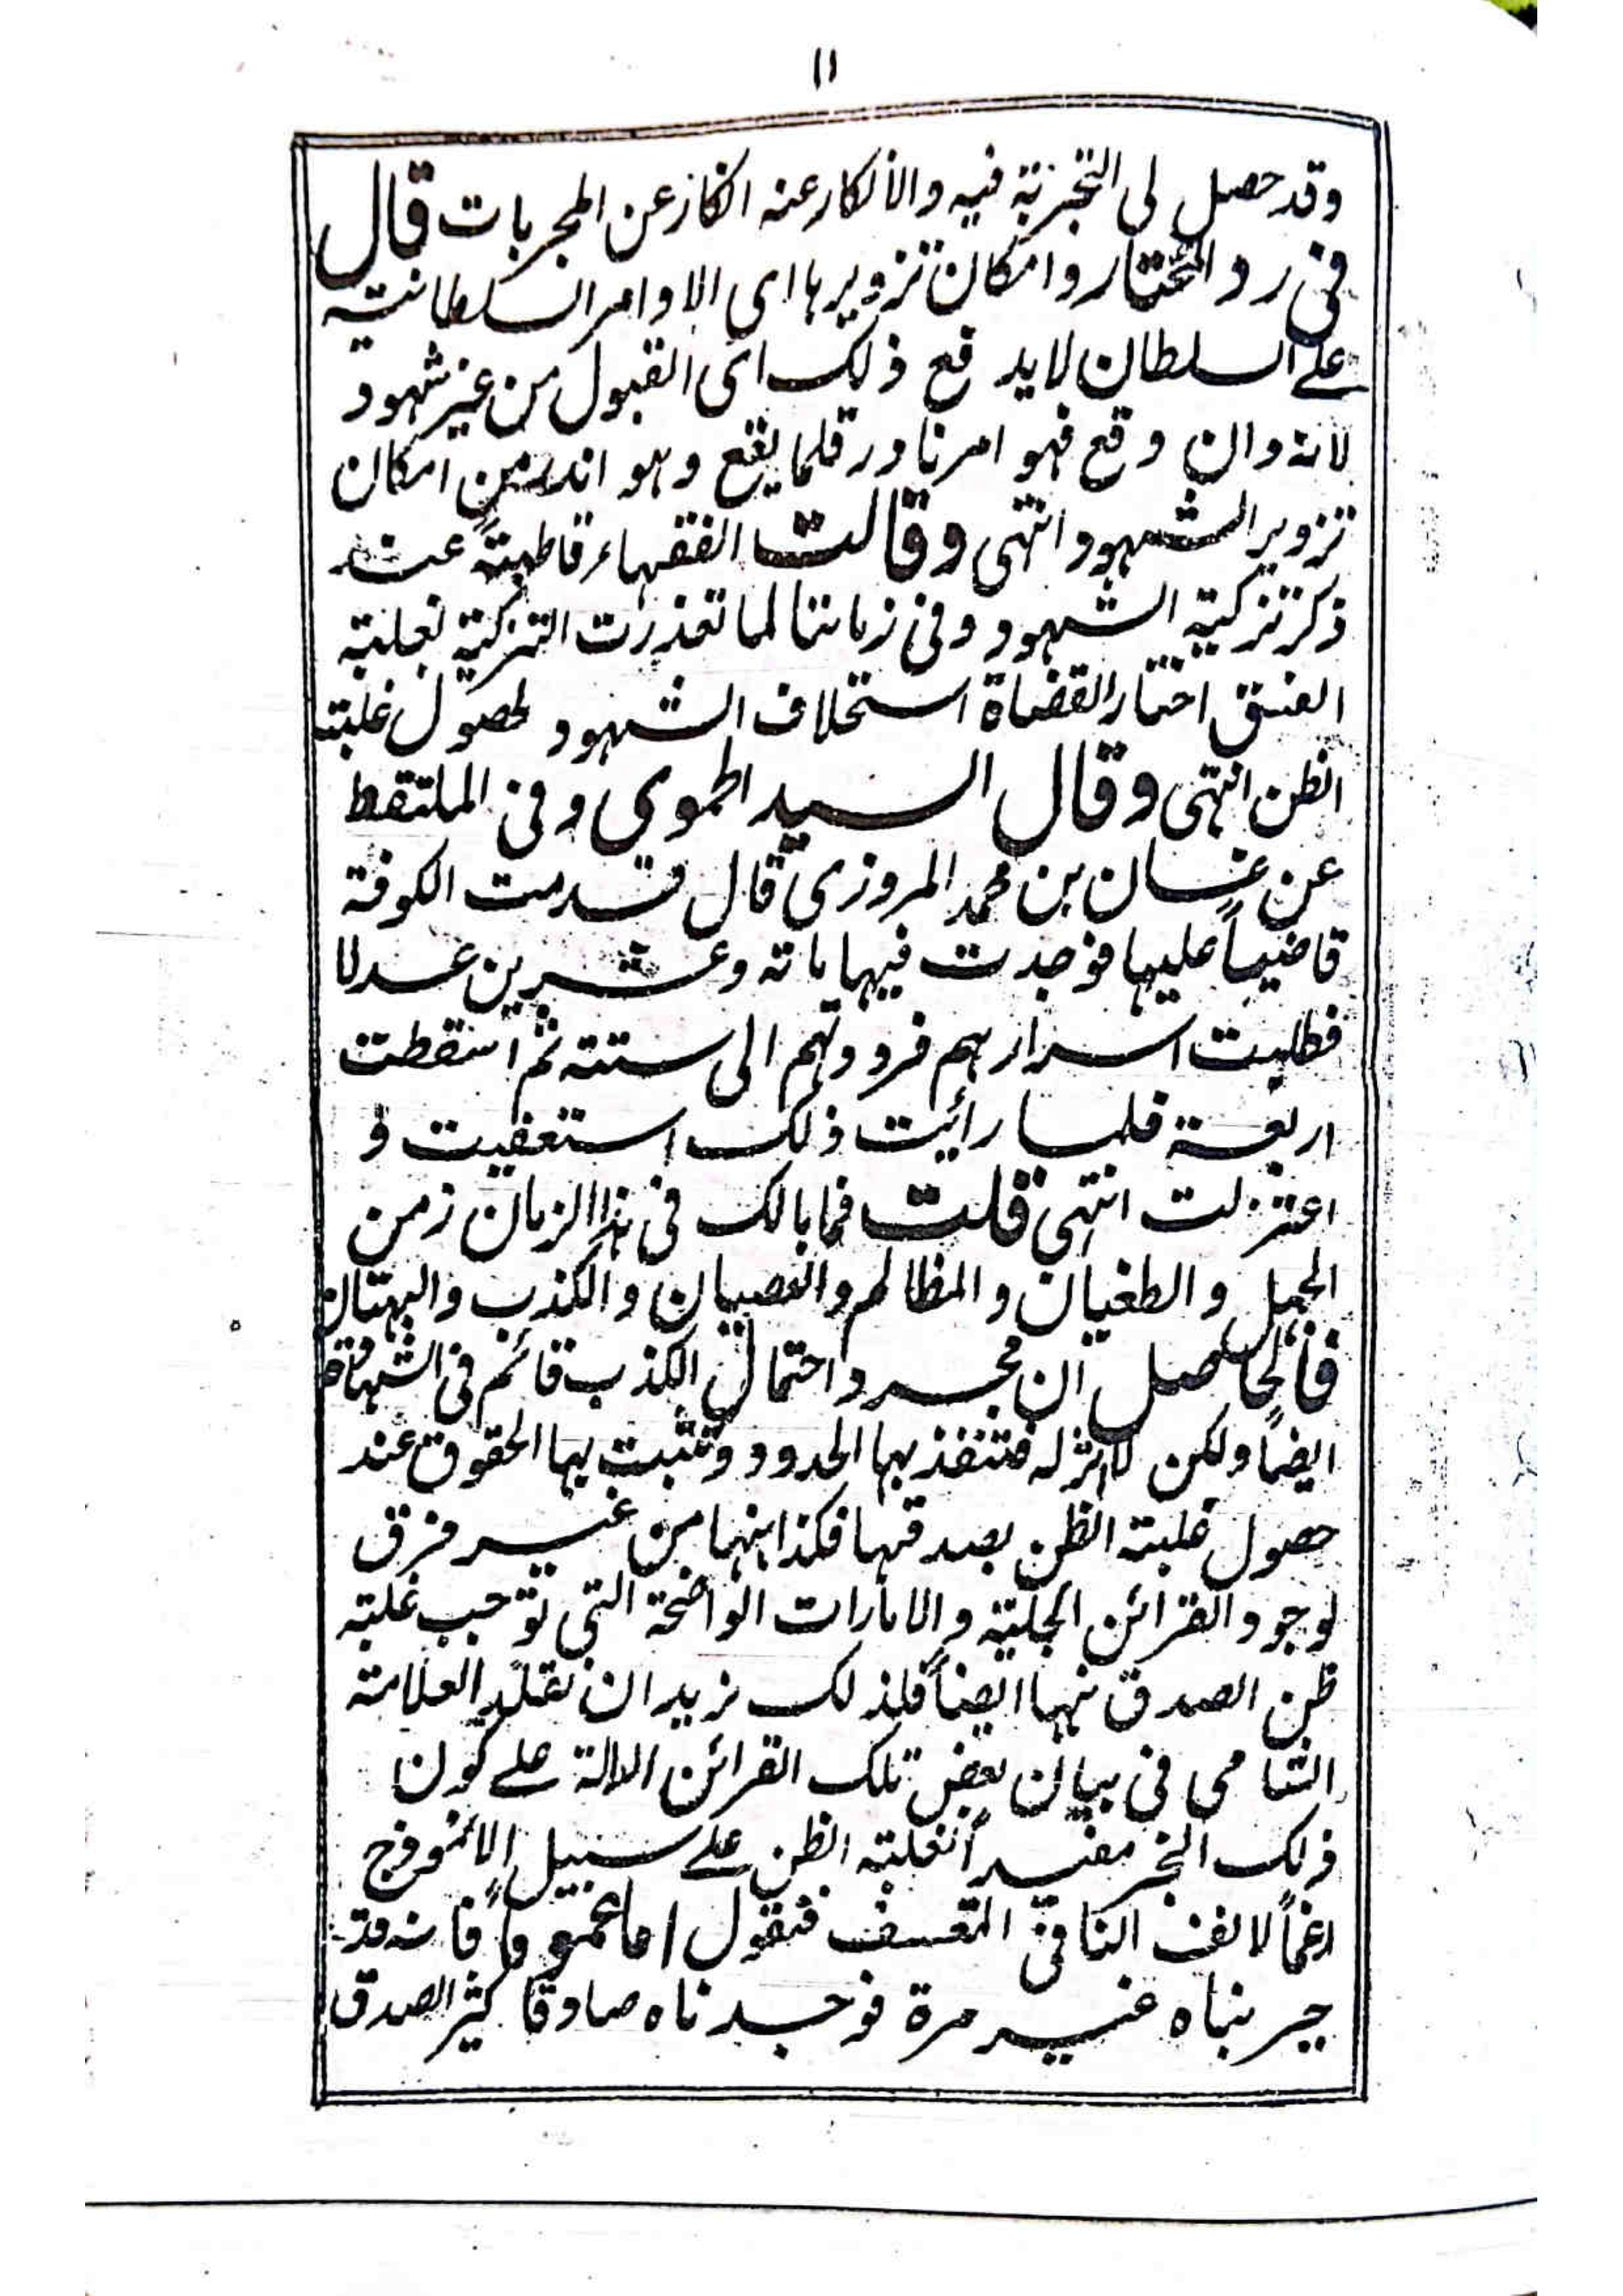 ١١
وقد حصل لى التجربة فيه والانكار عنه انكار عن المجربات قال
فى رد المختار وامكان تزويرها اى الاوامر السلطانية
على السلطان لا يدفع ذلك اى القبول من غير شهود
لانه وان وقع فهو امر نادر قلما يقع وهو اندر من امكان
تزوير الشهود انتهى وقالت الفقهاء قاطبةً عند
ذكر تزكية الشهود وفى زماننا لما تعذرت التزكية لغلبة
الفسق اختار القضاة استحلاف الشهود لحصول غلبة
الظن انتهى وقال السيد الحموى وفى الملتقط
عن غسان بن محمد المروزى قال قدمت الكوفة
قاضياً عليها فوجدت فيها مائة وعشرين عدلا
فطلبت اسرارهم فرددتهم الى ستة ثم اسقطت
اربعة فلما رأيت ذلك استعفيت و
اعتزلت انتهى قلت فما بالك فى هذا الزمان زمن
الجهل والطغيان والمظالم والعصيان والكذب والبهتان
فالحاصل ان مجرد احتمال الكذب قائم فى الشهادة
ايضاً ولكن لا اثر له فتنفذ بها الحدود وتثبت بها الحقوق عند
حصول غلبة الظن بصدقها فكذا ههنا من غير فرق
لوجود القرائن الجلية والامارات الواضحة التى توجب غلبة
ظن الصدق ههنا ايضاً فلذلك نريد ان نقلد العلامة
الشامى فى بيان بعض تلك القرائن الدالة على كون
ذلك الخبر مفيداً لغلبة الظن على سبيل الانموذج
رغماً لانف النافى المتعسف فنقول اما عموماً فانه قد
جربناه غير مرة فوجدناه صادقا كثير الصدق